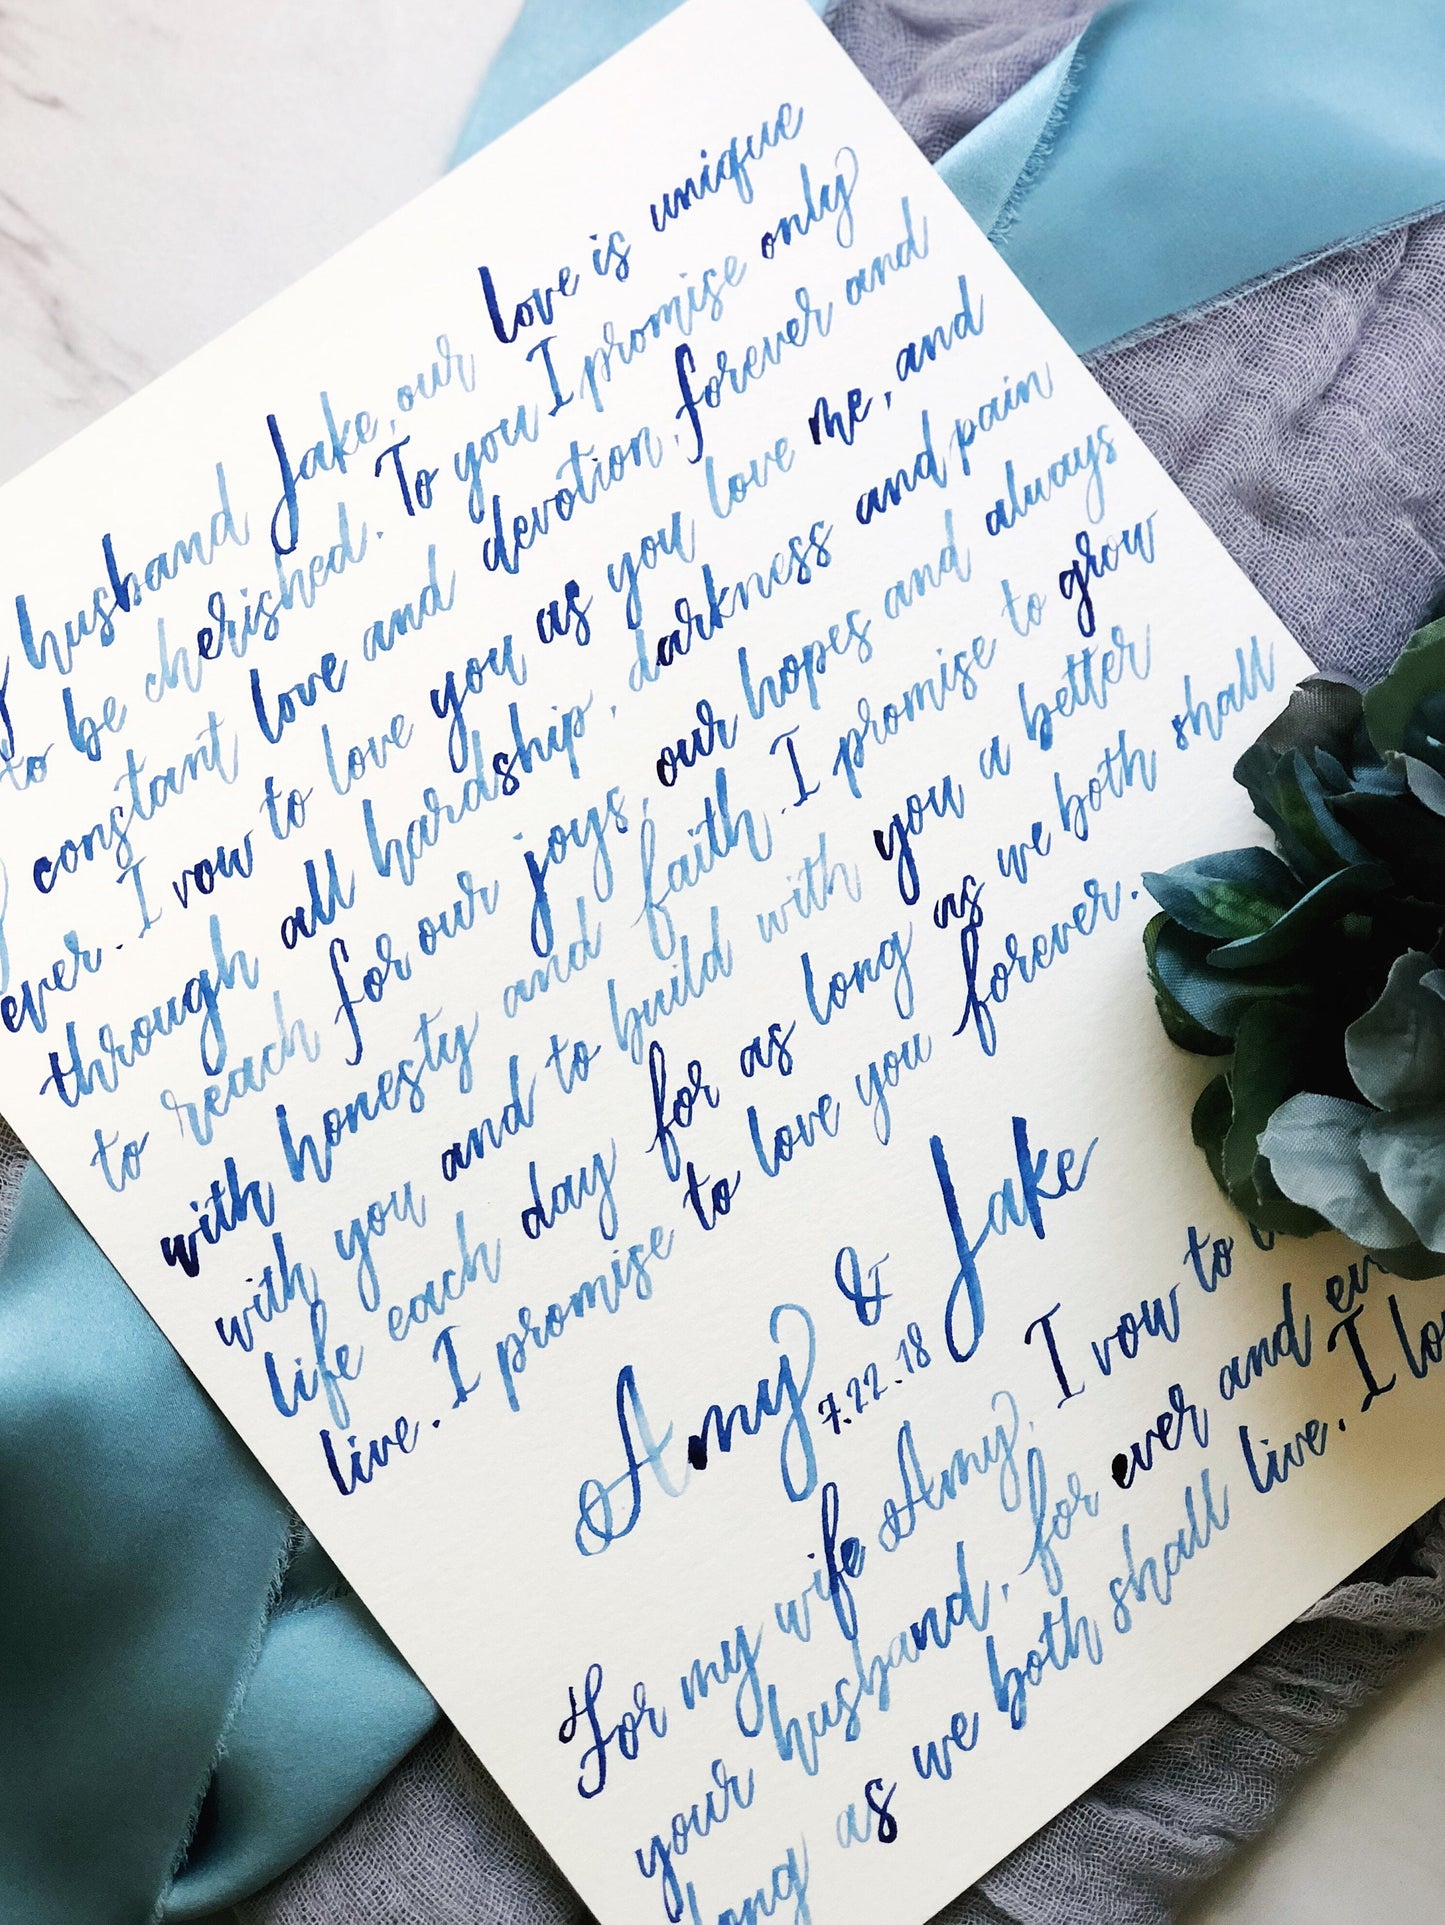 husband Jake, our love is unique
to be cherished. To you I promise only
constant love and devotion, forever and
ever. I vow to love you as you love me, and
through all hardship, darkness and pain
to reach for our joys, our hopes and always
with honesty and faith. I promise to grow
with you and to build with you a better
life each day for as long as we both shall
live. I promise to love you forever.
Amy & Jake
7.22.18
For my wife Amy, I vow to
your husband, for ever and
long as we both shall live. I